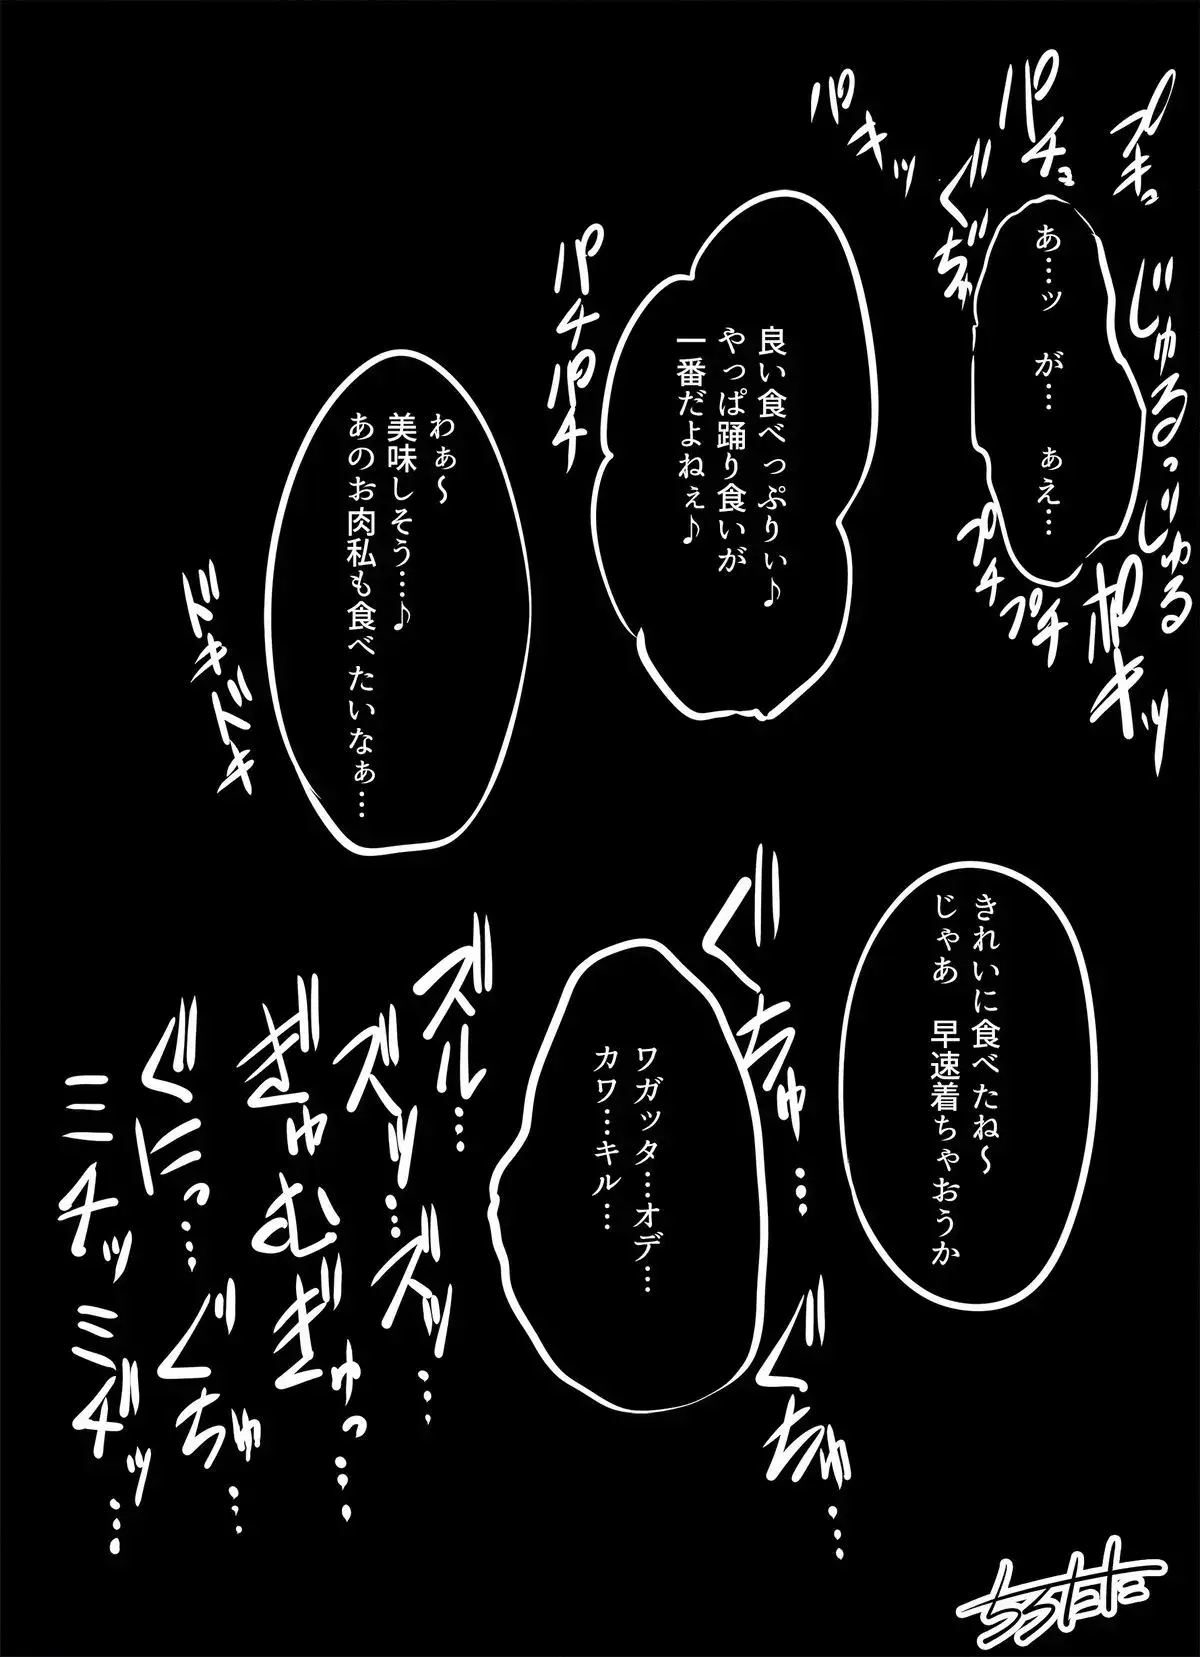 プキュッ
パチョ
パキッ
ぐぢゅ
じゅるっじゅる
あ…ッ　が…　ぁえ…
プチプチ
ポキッ
良い食べっぷりぃ♪
やっぱ踊り食いが
一番だよねぇ♪
パチパチ
わぁ～
美味しそう…♪
あのお肉私も食べたいなぁ…
ドキドキ
きれいに食べたね～
じゃあ　早速着ちゃおうか
ぐちゅ…
ぐちゅ…
ワガッタ…オデ…
カワ…キル…
ズル…
ズッ…ズッ…
ぎゅむぎゅっ…
ぐにっ…ぐちゅ…
ミチッミヂッ…
ちろたた